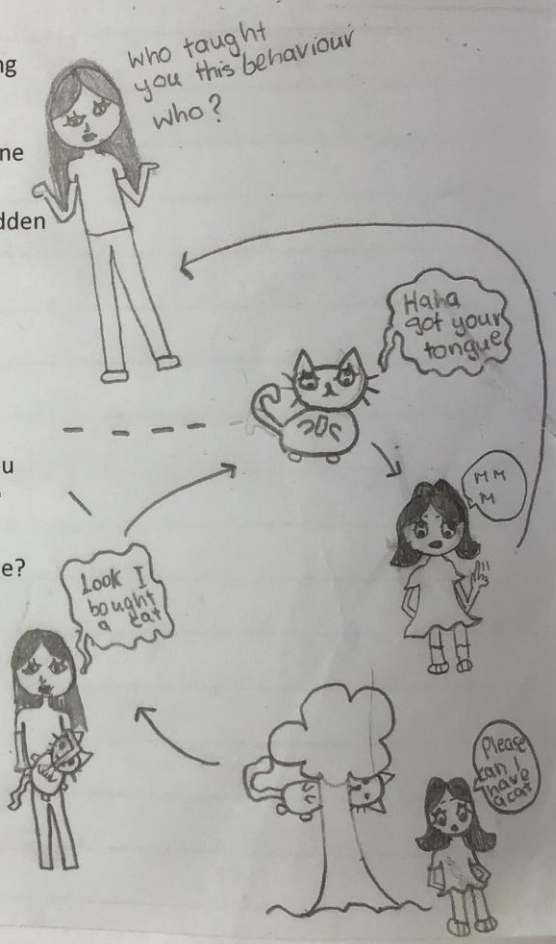 ng
ne
dden
u
e?
who taught
you this behaviour
who?
Haha
got your
tongue
M M
M
Look I
bought
a cat
Please
can I
have
a cat